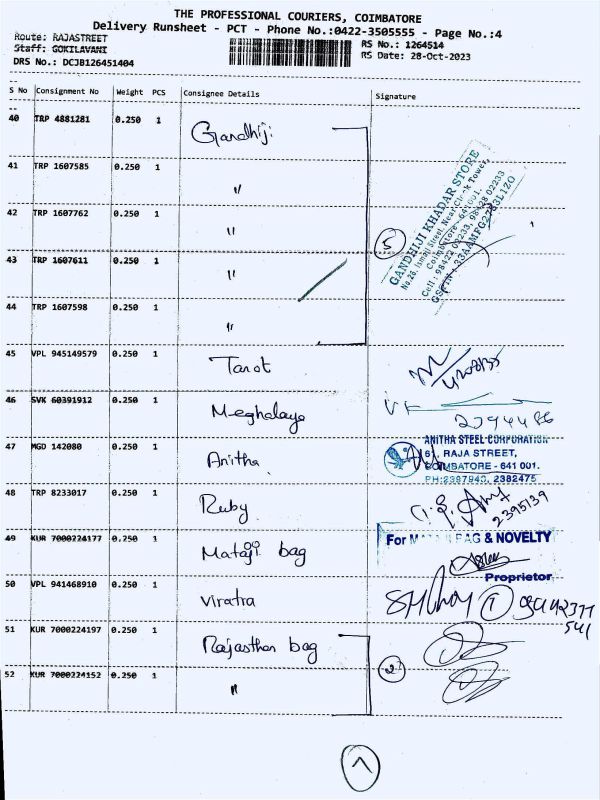 THE PROFESSIONAL COURIERS, COIMBATORE
Delivery Runsheet - PCT - Phone No.:0422-3505555 - Page No.:4
Route: RAJASTREET
Staff: GOKILAVANI
DRS No.: DCJB126451404
RS No.: 1264514
RS Date: 28-Oct-2023
S No Consignment No Weight PCS Consignee Details Signature
40 TRP 4881281 0.250 1 Gandhiji
41 TRP 1607585 0.250 1 "
42 TRP 1607762 0.250 1 "
43 TRP 1607611 0.250 1 "
44 TRP 1607598 0.250 1 "
5
GANDHIJI KHADAR STORE
Coimbatore - 641 001.
45 VPL 945149579 0.250 1 Tarot
46 SVK 60391912 0.250 1 Meghalaya
2394486
47 MGD 142080 0.250 1 Anitha
ANITHA STEEL CORPORATION
RAJA STREET,
COIMBATORE - 641 001.
PH:2387940, 2382475
48 TRP 8233017 0.250 1 Ruby
2395139
49 KUR 7000224177 0.250 1 Mataji bag
For BAG & NOVELTY
Proprietor
50 VPL 941468910 0.250 1 Viratra
1
51 KUR 7000224197 0.250 1 Rajasthan bag
52 KUR 7000224152 0.250 1 "
2